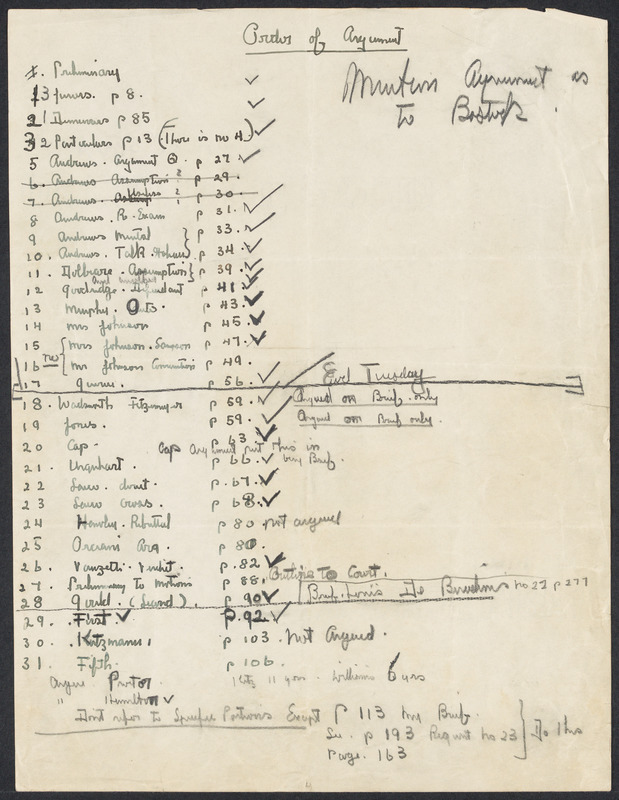 Order of Argument
1. Preliminary
13 Jurors. p 8.
21 Dummies p 85
32 Particulars p 13 (There is no 4)
Argument as
to Bostock.
5 Andrews. Argument Q. p 27
6. Andrews Assumption ? p 29.
7. Andrews. p 30.
8 Andrews. R. Exam p 31.
9 Andrews Mental p 33.
10. Andrews. Talk. p 34
11. Dolbeare. Assumption p 39
12 Goodridge. Defendant p 41
13 Murphy. p 43.
14 Mrs Johnson p 45.
15 Mrs Johnson. p 47.
16 Mrs Johnson p 49.
17 p 56.
End Tuesday
18. Wadsworth Fitzemeyer p 59.
Argued on Brief. only
19 Jones. p 59.
Argued on Brief only.
20 Cap. p 63
Cap argument put this in
my Brief.
21. Urquhart. p 66
22 p. 67.
23 p 68.
24 Hawley. Rebuttal p 80 not argued
25 p 80.
26. Vanzetti. p .82
27. Preliminary to Motions p 88.
Outline to Court.
28 Gould. (Second). p 90
no 27 p 277
29. First. p. 92
30. Katzmann p 103. Not Argued.
31. Fifth. p 106.
Argue. Proctor
11 yrs. Williams 6 yrs
" Hamilton
Don't refer to Specific Portions Except p 113 my Brief.
See. p 193 Request no 23
Page. 163
Do this